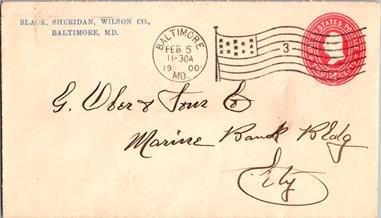 BLACK, SHERIDAN, WILSON CO.,
BALTIMORE, MD.
BALTIMORE
FEB 5
11-30A
1900
MD.
3
G. Ober & Sons Co
Marine Bank Bldg
City